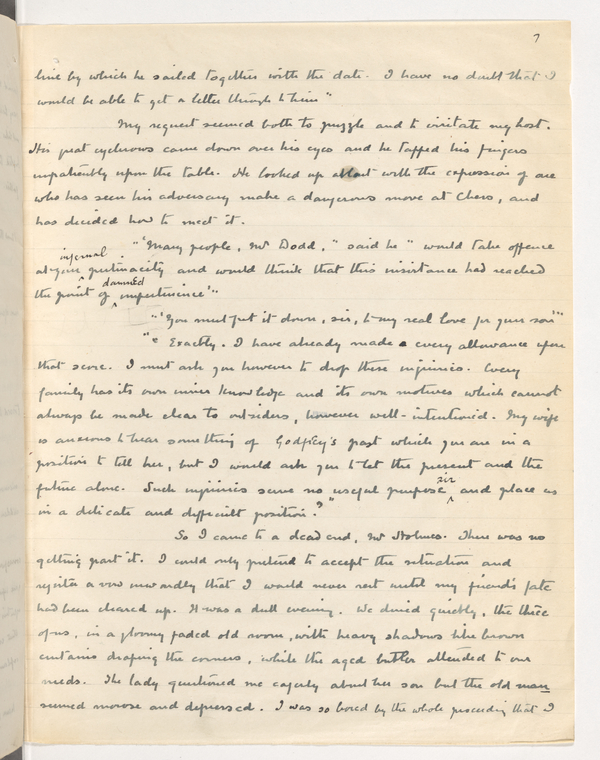 7
line by which he sailed together with the date. I have no doubt that I
would be able to get a letter through to him"
My request seemed both to puzzle and to irritate my host.
His great eyebrows came down over his eyes and he tapped his fingers
impatiently upon the table. He looked up at last with the expression of one
who has seen his adversary make a dangerous move at Chess, and
has decided how to meet it.
"'Many people, Mr Dodd," said he "would take offence
infernal
at your pertinacity and would think that this insistance had reached
damned
the point of impertinence'"
"'You must put it down, sir, to my real love for your son'"
"' Exactly. I have already made every allowance upon
that score. I must ask you however to drop these inquiries. Every
family has its own inner knowledge and its own motives which cannot
always be made clear to outsiders, however well-intentioned. My wife
is anxious to hear something of Godfrey's past which you are in a
position to tell her, but I would ask you to let the present and the
sir
future alone. Such inquiries serve no useful purpose, and place us
in a delicate and difficult position."
So I came to a dead end, Mr Holmes. There was no
getting past it. I could only pretend to accept the situation and
register a vow inwardly that I would never rest until my friend's fate
had been cleared up. It was a dull evening. We dined quietly, the three
of us, in a gloomy faded old room, with heavy shadows like brown
curtains draping the corners, while the aged butler attended to our
needs. The lady questioned me eagerly about her son but the old man
seemed morose and depressed. I was so bored by the whole proceeding that I